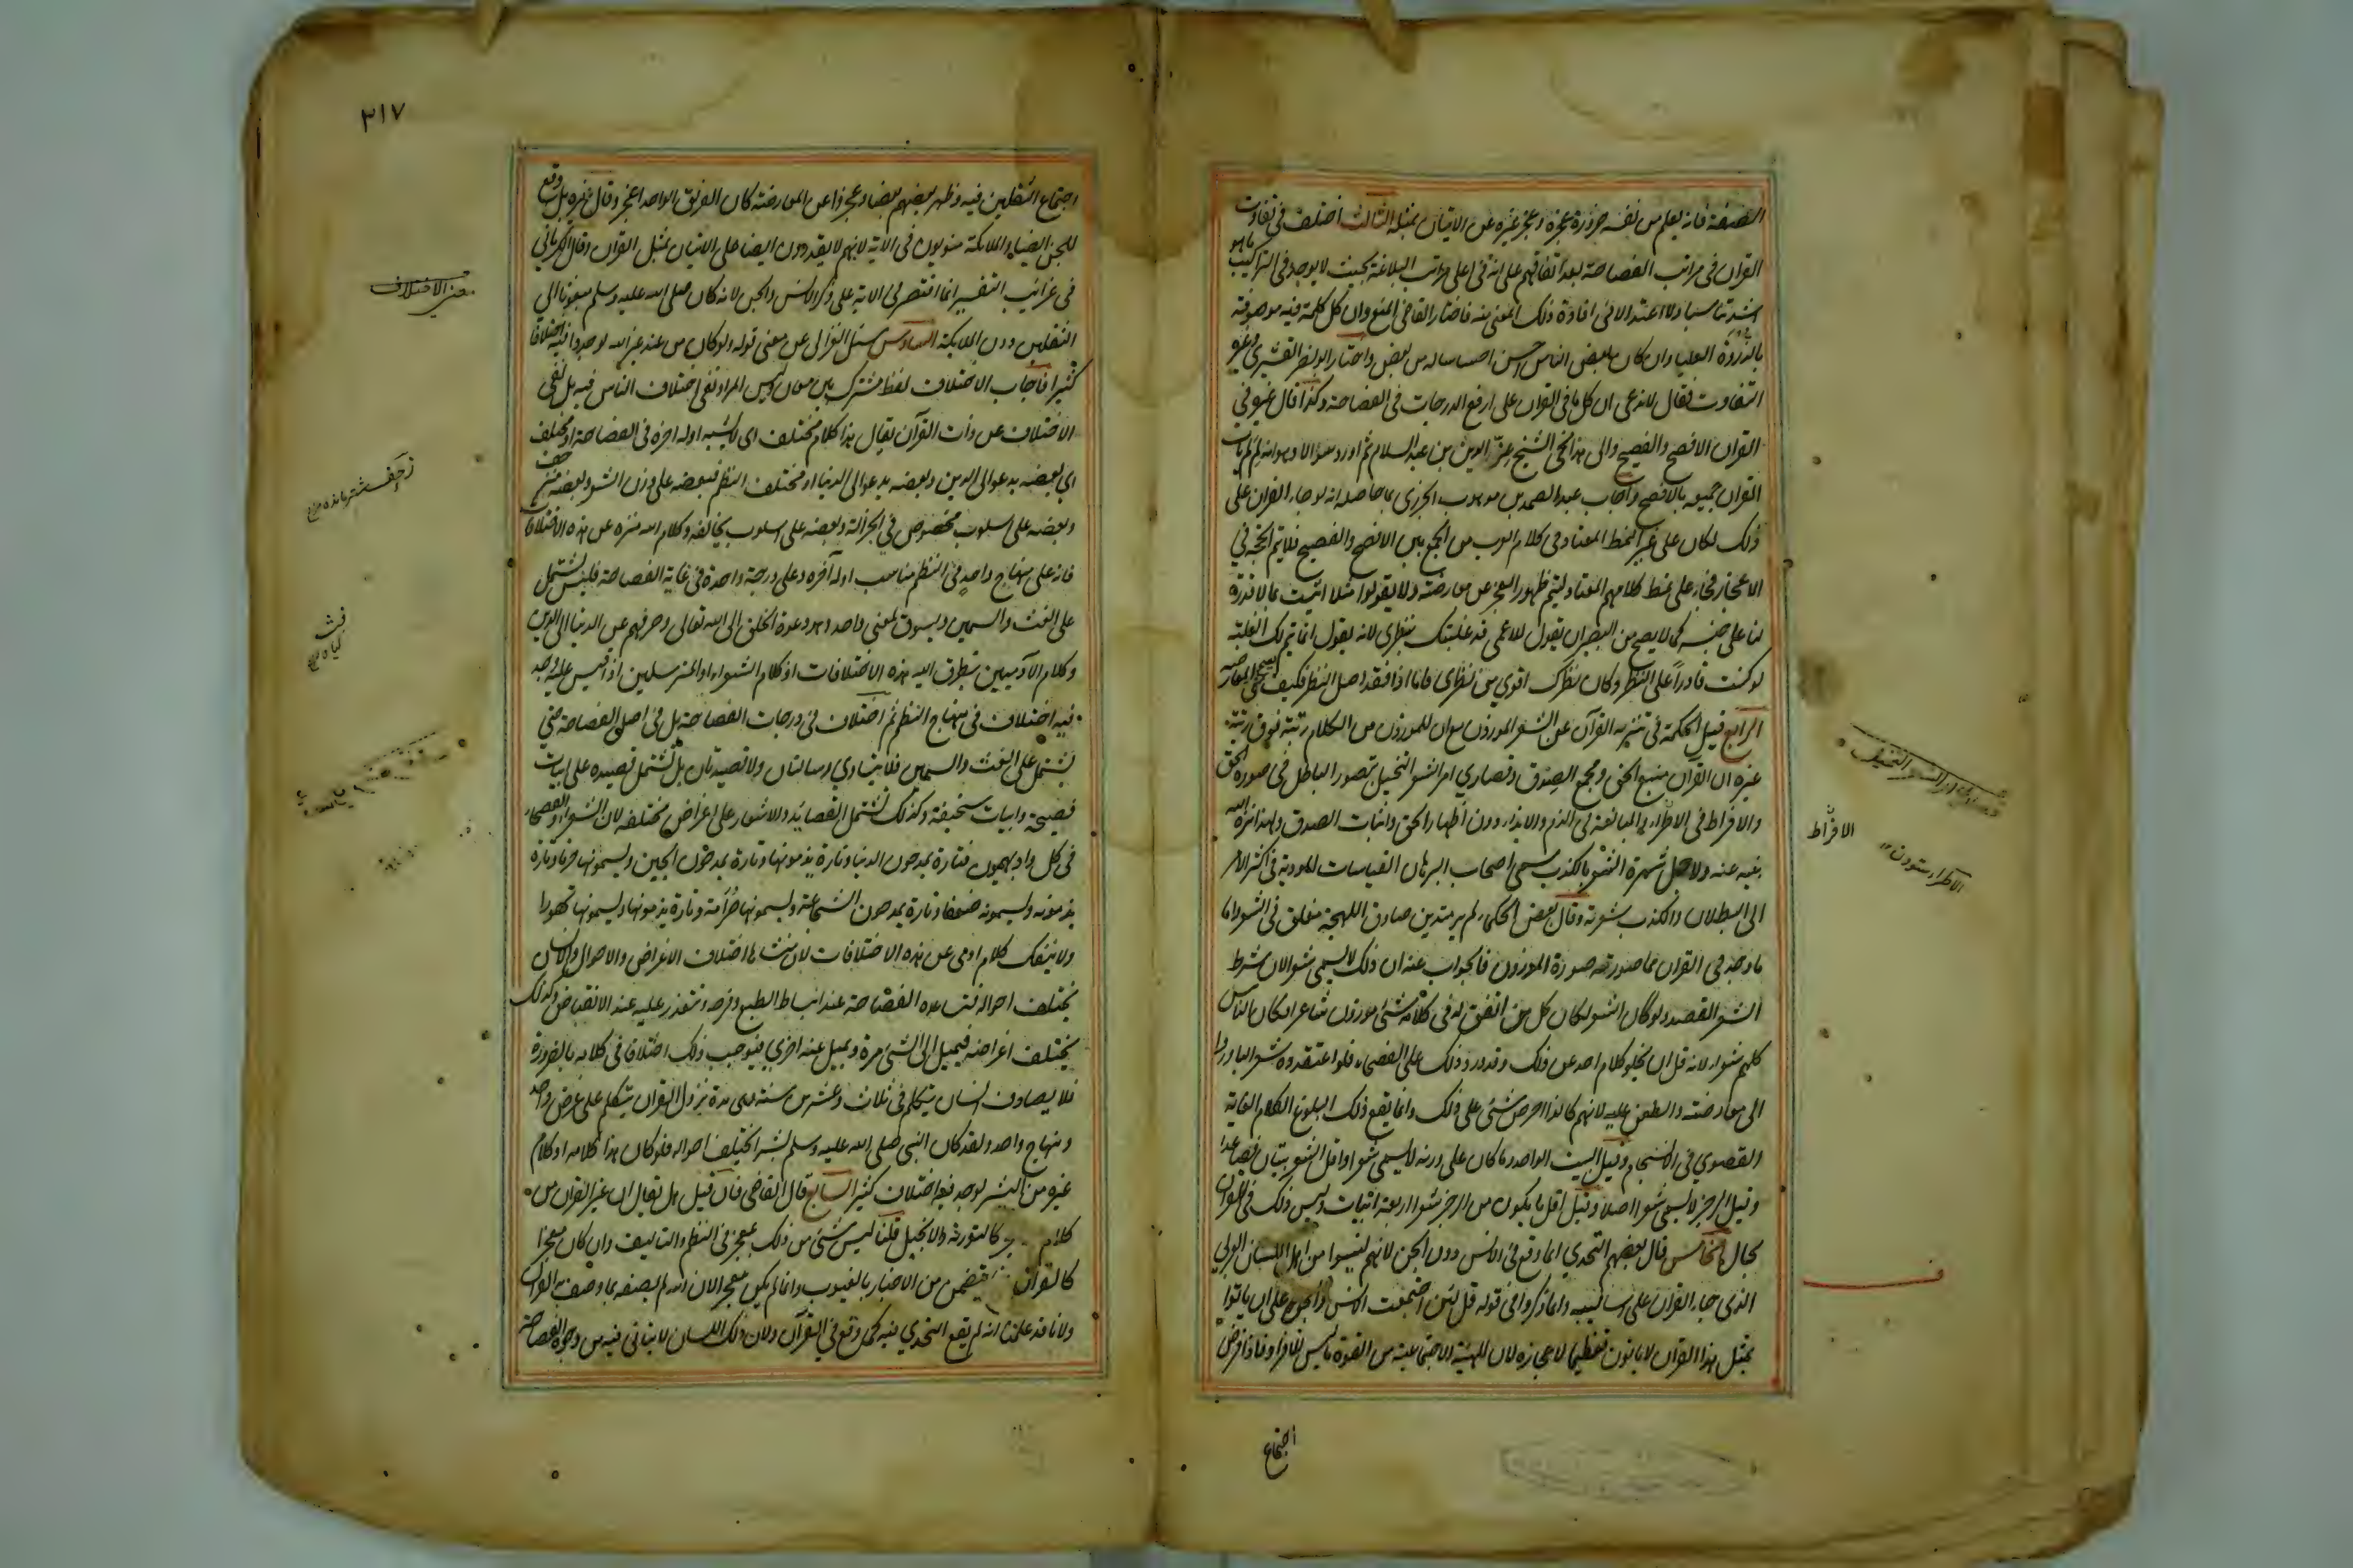 الصنعة فانه يعلم من نفسه ضرورة عجزه وعجز غيره عن الاتيان بمثله الثالث اختلف في تفاوت
القران في مراتب الفصاحة بعد اتفاقهم على انه في اعلى مراتب البلاغة بحيث لا يوجد في التراكيب ما هو
اشد تناسبا ولا اعتدالا في افادة ذلك المعنى منه فاختار القاضي المنع وان كل كلمة فيه موصوفة
بالذروة العليا وان كان بعض الناس احسن احساسا له من بعض واختار ابو نصر القشيري وغيره
التفاوت فقال لا ندعى ان كل ما في القران على ارفع الدرجات في الفصاحة وكذا قال غيره في
القران الافصح والفصيح والى هذا نحى الشيخ عز الدين بن عبد السلام ثم اورد سؤالا وهو انه لم لم يات
القران جميعه بالافصح واجاب عنه الصدر موهوب الجزري بما حاصله انه لو جاء القران على
ذلك لكان على غير النمط المعتاد في كلام العرب من الجمع بين الافصح والفصيح فلا يتم الحجة في
الاعجاز فجاء على نمط كلامهم المعتاد ليتم ظهور العجز عن معارضته ولا يقولوا مثلا اتيت بما لا قدرة
لنا على جنسه كما لا يصح من البصير ان يقول للاعمى قد غلبتك بنظري لانه يقول انما تتم لك الغلبة
لو كنت قادرا على النظر وكان نظرك اقوى من نظري فاما اذا فقد اصل النظر فكيف يصح المعارضة
الرابع قيل الحكمة في تنزيه القرآن عن الشعر الموزون مع ان الموزون من الكلام رتبته فوق رتبة
غيره ان القران منبع الحق ومجمع الصدق وقصارى امر الشعر التخييل بتصور الباطل في صورة الحق
والافراط في الاطراء والمبالغة في الذم والايذاء دون اظهار الحق واثبات الصدق ولهذا نزه الله
نبيه عنه ولاجل شهرة الشعر بالكذب سمى اصحاب البرهان القياسات المؤدية في اكثر الامر
الى البطلان والكذب شعرية وقال بعض الحكماء لم ير متدين صادق اللهجة مفلق في الشعر واما
ما وجد في القران مما صورته صورة الموزون فالجواب عنه ان ذلك لا يسمى شعرا لان شرط
الشعر القصد ولو كان الشعر لكان كل من اتفق له في كلامه شئ موزون شاعرا فكان الناس
كلهم شعراء لانه قل ان يخلو كلام احد عن ذلك وقد ورد ذلك على الفصحاء فلو اعتقدوه شعرا لبادروا
الى معارضته والطعن عليه لانهم كانوا احرص شئ على ذلك وانما يقع ذلك لبلوغ الكلام الغاية
القصوى في الانسجام وقيل البيت الواحد وما كان على وزنه لا يسمى شعرا واقل الشعر بيتان فصاعدا
وقيل الرجز لا يسمى شعرا اصلا وقيل اقل ما يكون من الرجز شعرا اربعة ابيات وليس ذلك في القران
بحال الخامس قال بعضهم التحدي انما وقع في الانس دون الجن لانهم ليسوا من اهل اللسان العربي
الذي جاء القران على اساليبه وانما ذكروا في قوله قل لئن اجتمعت الانس والجن على ان ياتوا
بمثل هذا القران لا ياتون تعظيما لاعجازه لان للهيئة الاجتماعية من القوة ما ليس للافراد فاذا فرض
اجتماع
الافراط
الاطراء ستودن
٣١٧
اجتماع الثقلين فيه وظهر بعضهم بعضا وعجزوا عن المعارضة كان الفريق الواحد اعجز وقال غيره بل وقع
للجن ايضا والملائكة منويون في الاية لانهم لا يقدرون ايضا على الاتيان بمثل القران وقال الكرماني
في غرائب التفسير انما اقتصر في الاية على ذكر الانس والجن لانه كان صلى الله عليه وسلم مبعوثا الى
الثقلين دون الملايكة السادس سئل الغزالي عن معنى قوله ولو كان من عند غير الله لوجدوا فيه اختلافا
كثيرا فاجاب الاختلاف لفظ مشترك بين معان وليس المراد نفي اختلاف الناس فيه بل نفي
الاختلاف عن ذات القرآن يقال هذا كلام مختلف اى لا يشبه اوله اخره في الفصاحة او مختلف
اى بعضه يدعو الى الدين وبعضه يدعو الى الدنيا او مختلف النظم فبعضه على وزن الشعر وبعضه منزحف
وبعضه على اسلوب مخصوص في الجزالة وبعضه على اسلوب يخالفه وكلام الله منزه عن هذه الاختلافات
فانه على منهاج واحد في النظم مناسب اوله آخره وعلى درجة واحدة في غاية الفصاحة فليس يشتمل
على الغث والسمين ويسوق لمعنى واحد وهو دعوة الخلق الى الله تعالى وصرفهم عن الدنيا الى الدين
وكلام الآدميين يتطرق اليه هذه الاختلافات اذ كلام الشعراء والمترسلين اذا قيس عليه وجد
فيه اختلاف في منهاج النظم ثم اختلاف في درجات الفصاحة بل في اصل الفصاحة حتى
يشتمل على الغث والسمين فلا يتساوي رسالتان ولا قصيدتان بل تشتمل قصيدة على ابيات
فصيحة وابيات سخيفة وكذلك تشتمل القصائد والاشعار على اغراض مختلفة لان الشعراء والفصحاء
في كل واد يهيمون فتارة يمدحون الدنيا وتارة يذمونها وتارة يمدحون الجبن ويسمونه حزما وتارة
يذمونه ويسمونه ضعفا وتارة يمدحون الشجاعة ويسمونها صرامة وتارة يذمونها ويسمونها تهورا
ولا ينفك كلام ادمى عن هذه الاختلافات لان منشاءها اختلاف الاغراض والاحوال والانسان
يختلف احواله فتساعده الفصاحة عند انبساط الطبع وفرحه وتتعذر عليه عند الانقباض وكذلك
يختلف اغراضه فيميل الى الشئ مرة ويميل عنه اخرى فيوجب ذلك اختلافا في كلامه بالضرورة
فلا يصادف انسان يتكلم في ثلاث وعشرين سنة وهى مدة نزول القران يتكلم على غرض واحد
ومنهاج واحد ولقد كان النبي صلى الله عليه وسلم بشرا يختلف احواله فلو كان هذا كلامه او كلام
غيره من البشر لوجد فيه اختلاف كثير السابع قال القاضي فان قيل هل تقال ان غير القران من
كلام كالتورية والانجيل قلنا ليس شئ من ذلك بمعجز في النظم والتاليف وان كان معجزا
كالقران يتضمن من الاخبار بالغيوب وانما لم يكن معجزا لان الله لم يصفه بما وصف به القران
ولانا قد علمنا انه لم يقع التحدي فيه كما وقع في القرآن ولان ذلك اللسان لا يتاتى فيه من وجوه الفصاحة
معنى الاختلاف